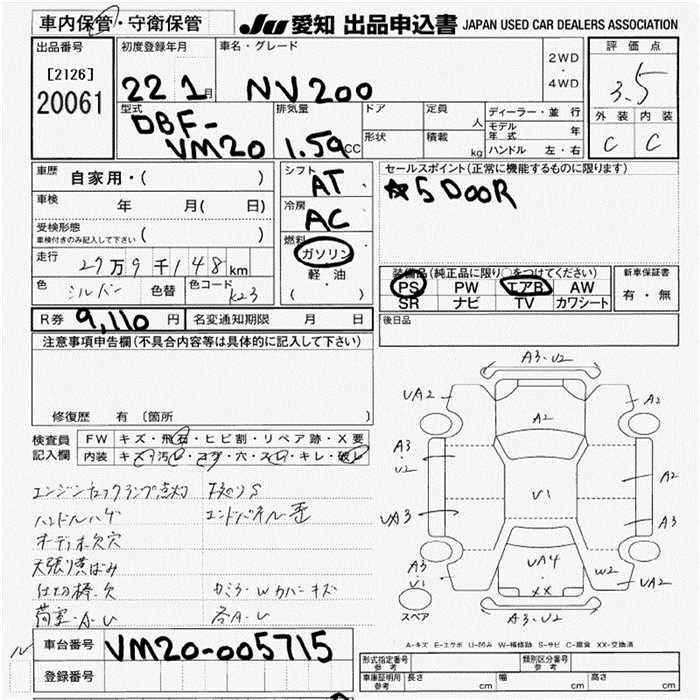 車内保管・守衛保管
JU 愛知 出品申込書 JAPAN USED CAR DEALERS ASSOCIATION
出品番号
[2126]
20061
初度登録年月
22 1月
車名・グレード
NV200
2WD
・
4WD
評価点
3.5
外装 内装
C C
型式
DBF-
VM20
排気量
1.59cc
ドア
形状
定員 人
積載 kg
ディーラー・並行
モデル年式 年
ハンドル 左・右
車歴 自家用・( )
車検 年 月( 日)
受検形態
車検付きのみ記入して下さい ( )
走行 27万9千148km
色 シルバー 色替 色コード K23
シフト AT
冷房 AC
燃料
ガソリン
軽・油
( ・ )
セールスポイント(正常に機能するものに限ります)
☆5DOOR
装備品(純正品に限り○をつけてください)
PS PW エアB AW
SR ナビ TV カワシート
新車保証書
有・無
R券 9,110円 名変通知期限 月 日
後日品
注意事項申告欄(不具合内容等は具体的に記入して下さい)
修復歴 有〔箇所 〕
検査員
記入欄
FW キズ・飛石・ヒビ割・リペア跡・X要
内装 キズ・汚レ・コゲ・穴・スレ・キレ・破レ
エンジンチェックランプ点灯 下廻りS
ハンドルハゲ
オーディオ欠穴
天張り黄ばみ
荷室・A・U 各A・U
A3・U2
UA2
A2
A2
A3
U2
A2
U1
UA3
A3
UA4
XX
W2
A3
U1
UA2
A3・U2
スペア
A-キズ E-エクボ U-凹み W-補修跡 S-サビ C-腐食 XX-交換済
車台番号 VM20-005715
登録番号
形式指定番号
参考
類別区分番号
参考
車庫証明用
参考
長さ cm 幅 cm 高さ cm